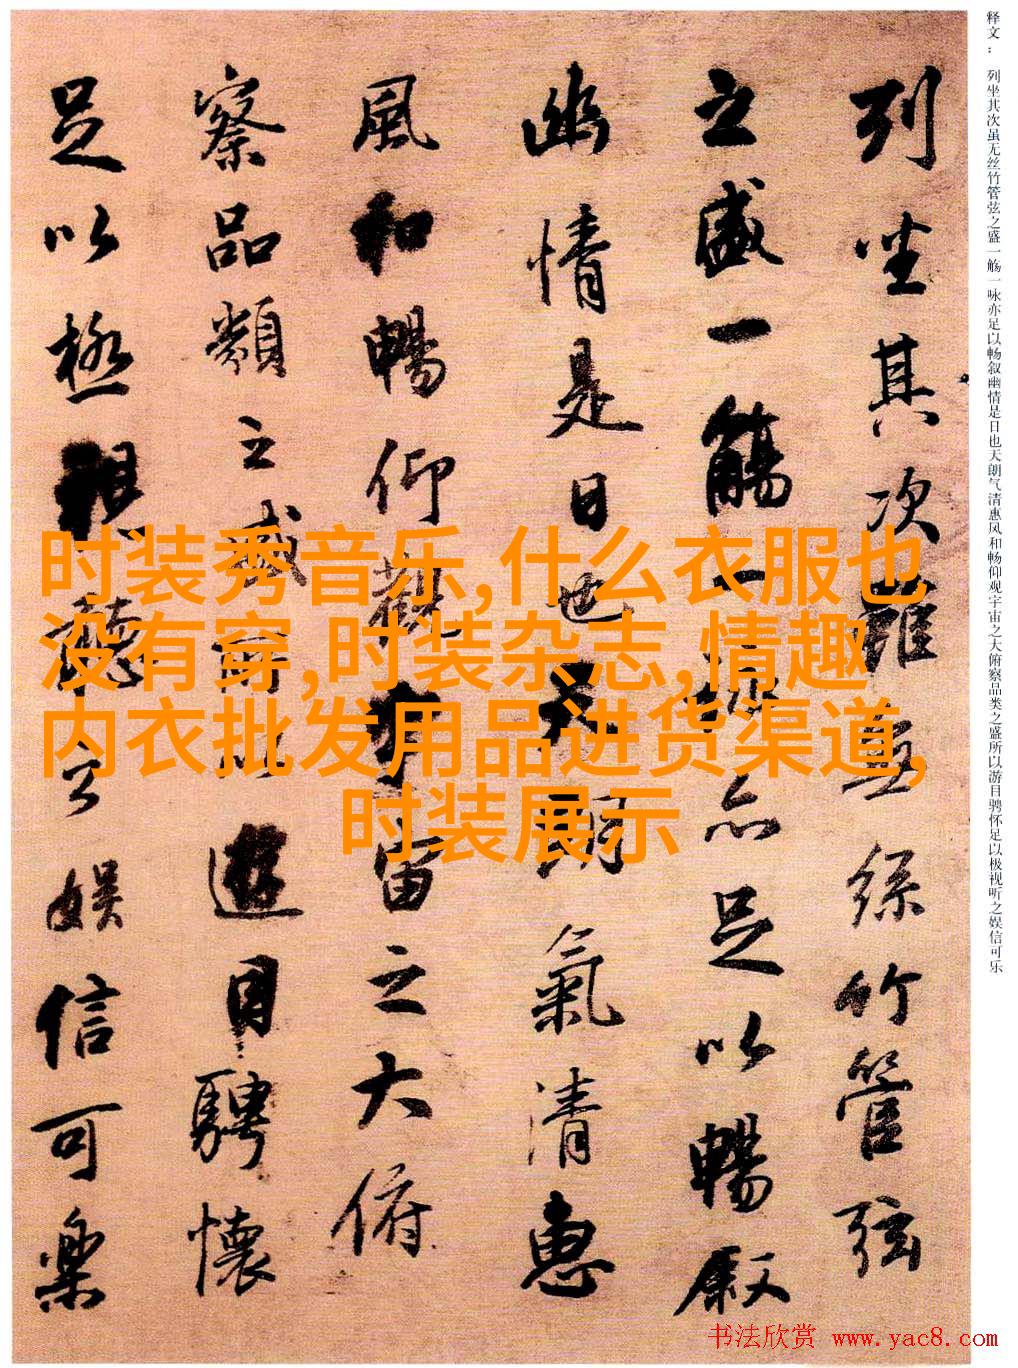 释文： 列坐其次虽无丝竹管弦之盛一觞一咏亦足以畅叙幽情是日也天朗气清惠风和畅仰观宇宙之大俯察品类之盛所以游目骋怀足以极视听之娱信可乐
列坐其次雖無絲竹管弦
之盛一觴一詠亦足以暢敘
幽情是日也天朗氣清惠
風和暢仰觀宇宙之大俯
察品類之盛所以遊目騁懷
足以極視聽之娛信可樂
时装秀音乐,什么衣服也
没有穿,时装杂志,情趣
内衣批发用品进货渠道,
时装展示
书法欣赏 www.yac8.com